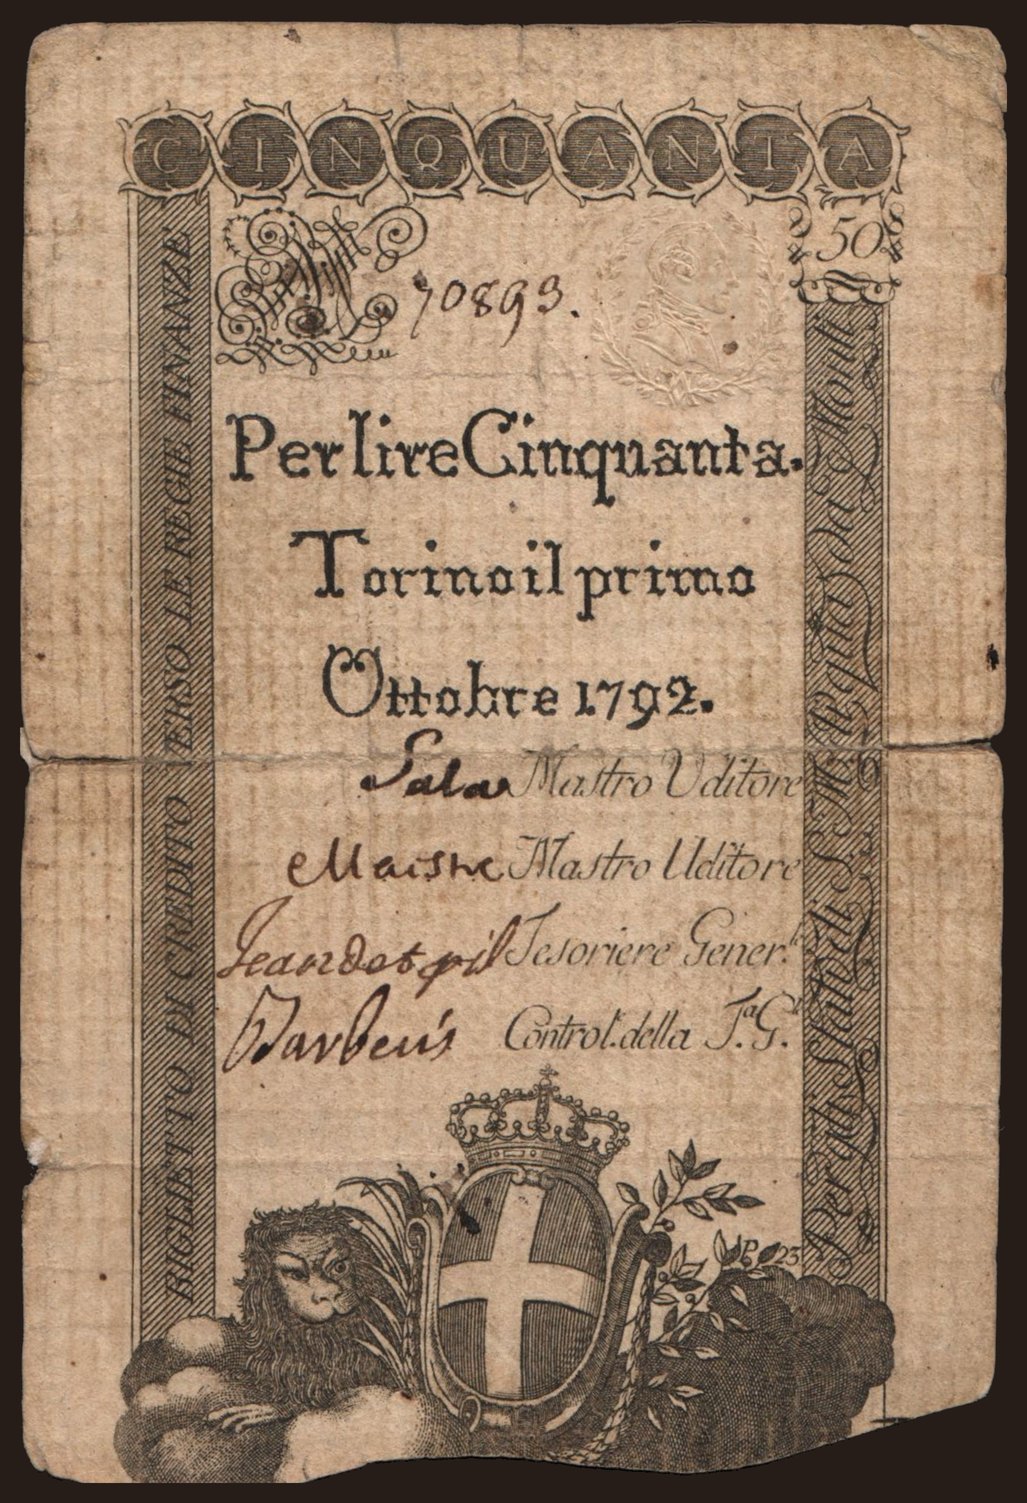 CINQUANTA
50
70893.
Per lire Cinquanta.
Torino il primo
Ottobre 1792.
Sala Mastro Uditore
Maistre Mastro Uditore
Jeandet Tesoriere Gener.le
Control.r della T.a G.le
BIGLIETTO DI CREDITO VERSO LE REGIE FINANZE
Per gli Stati di S. M. di quà da Monti
P. 23